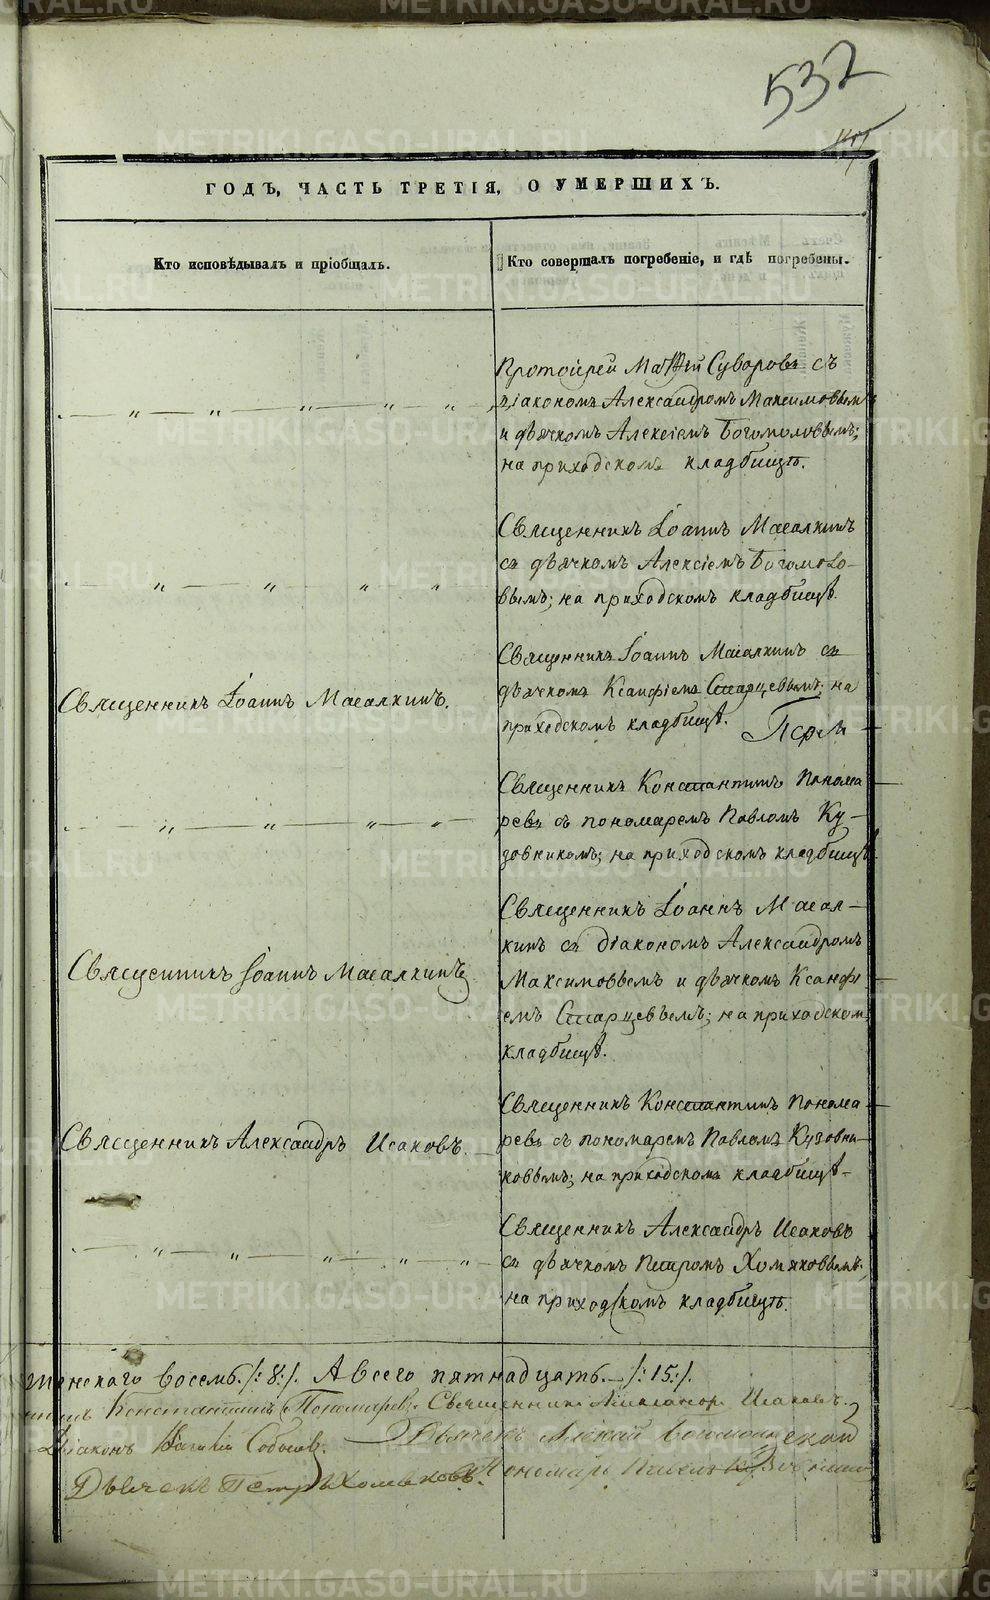 532
ГОДЪ, ЧАСТЬ ТРЕТІЯ, О УМЕРШИХЪ.
Кто исповѣдывалъ и пріобщалъ.
Кто совершалъ погребеніе, и гдѣ погребены.
Протоіерей Матѳей Суворовъ съ
діакономъ Александромъ Максимовымъ
и дьячкомъ Алексіемъ Богомоловымъ;
на приходскомъ кладбищѣ.
Священникъ Іоаннъ Масалкинъ
съ дьячкомъ Алексіемъ Богомоло-
вымъ; на приходскомъ кладбищѣ.
Священникъ Іоаннъ Масалкинъ.
Священникъ Іоаннъ Масалкинъ съ
дьячкомъ Ксанфіемъ Старцевымъ; на
приходскомъ кладбищѣ.
Священникъ Константинъ Понома
ревъ съ пономаремъ Павломъ Ку-
зовниковымъ; на приходскомъ кладбищѣ
Священникъ Іоаннъ Масалкинъ
Священникъ Іоаннъ Масал-
кинъ съ діакономъ Александромъ
Максимовымъ и дьячкомъ Ксанфі
емъ Старцевымъ; на приходскомъ
кладбищѣ.
Священникъ Александръ Исаковъ.
Священникъ Константинъ Понома
ревъ съ пономаремъ Павломъ Кузовни-
ковымъ; на приходскомъ кладбищѣ-
Священникъ Александръ Исаковъ
съ дьячкомъ Петромъ Хомяковымъ;
на приходскомъ кладбищѣ.
женскаго восемь /:8:/. А всего пятнадцать. /:15:/.
Константинъ Пономаревъ. Священникъ Александръ Исаковъ.
Діаконъ Дьячекъ Алексій
Дьячекъ Петръ Хомяковъ. Пономарь Павелъ
METRIKI.GASO-URAL.RU